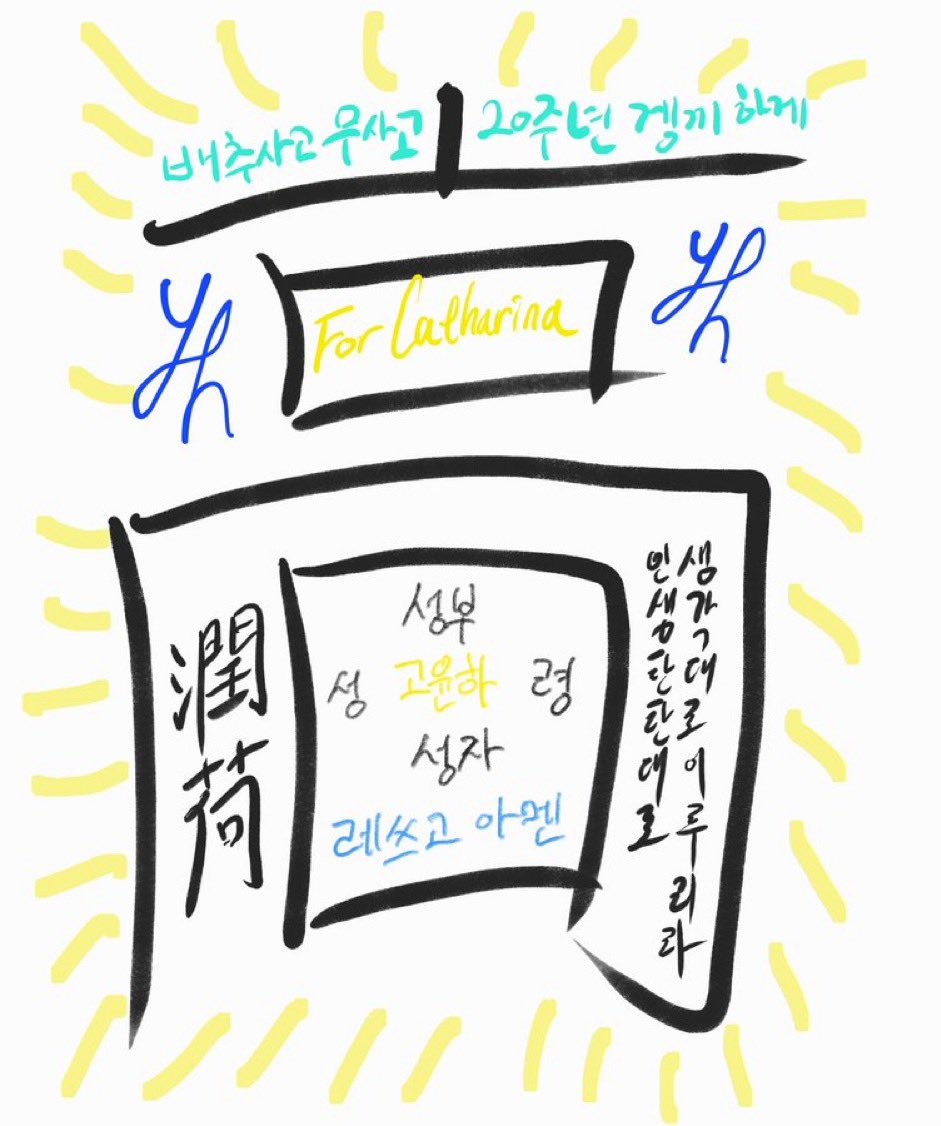 高
배추사고 무사고 20주년 겡끼하게
Yh
For Catharina
Yh
潤荷
성부
성 고윤하 령
성자
레쓰고 아멘
생각대로이루리라
인생탄탄대로